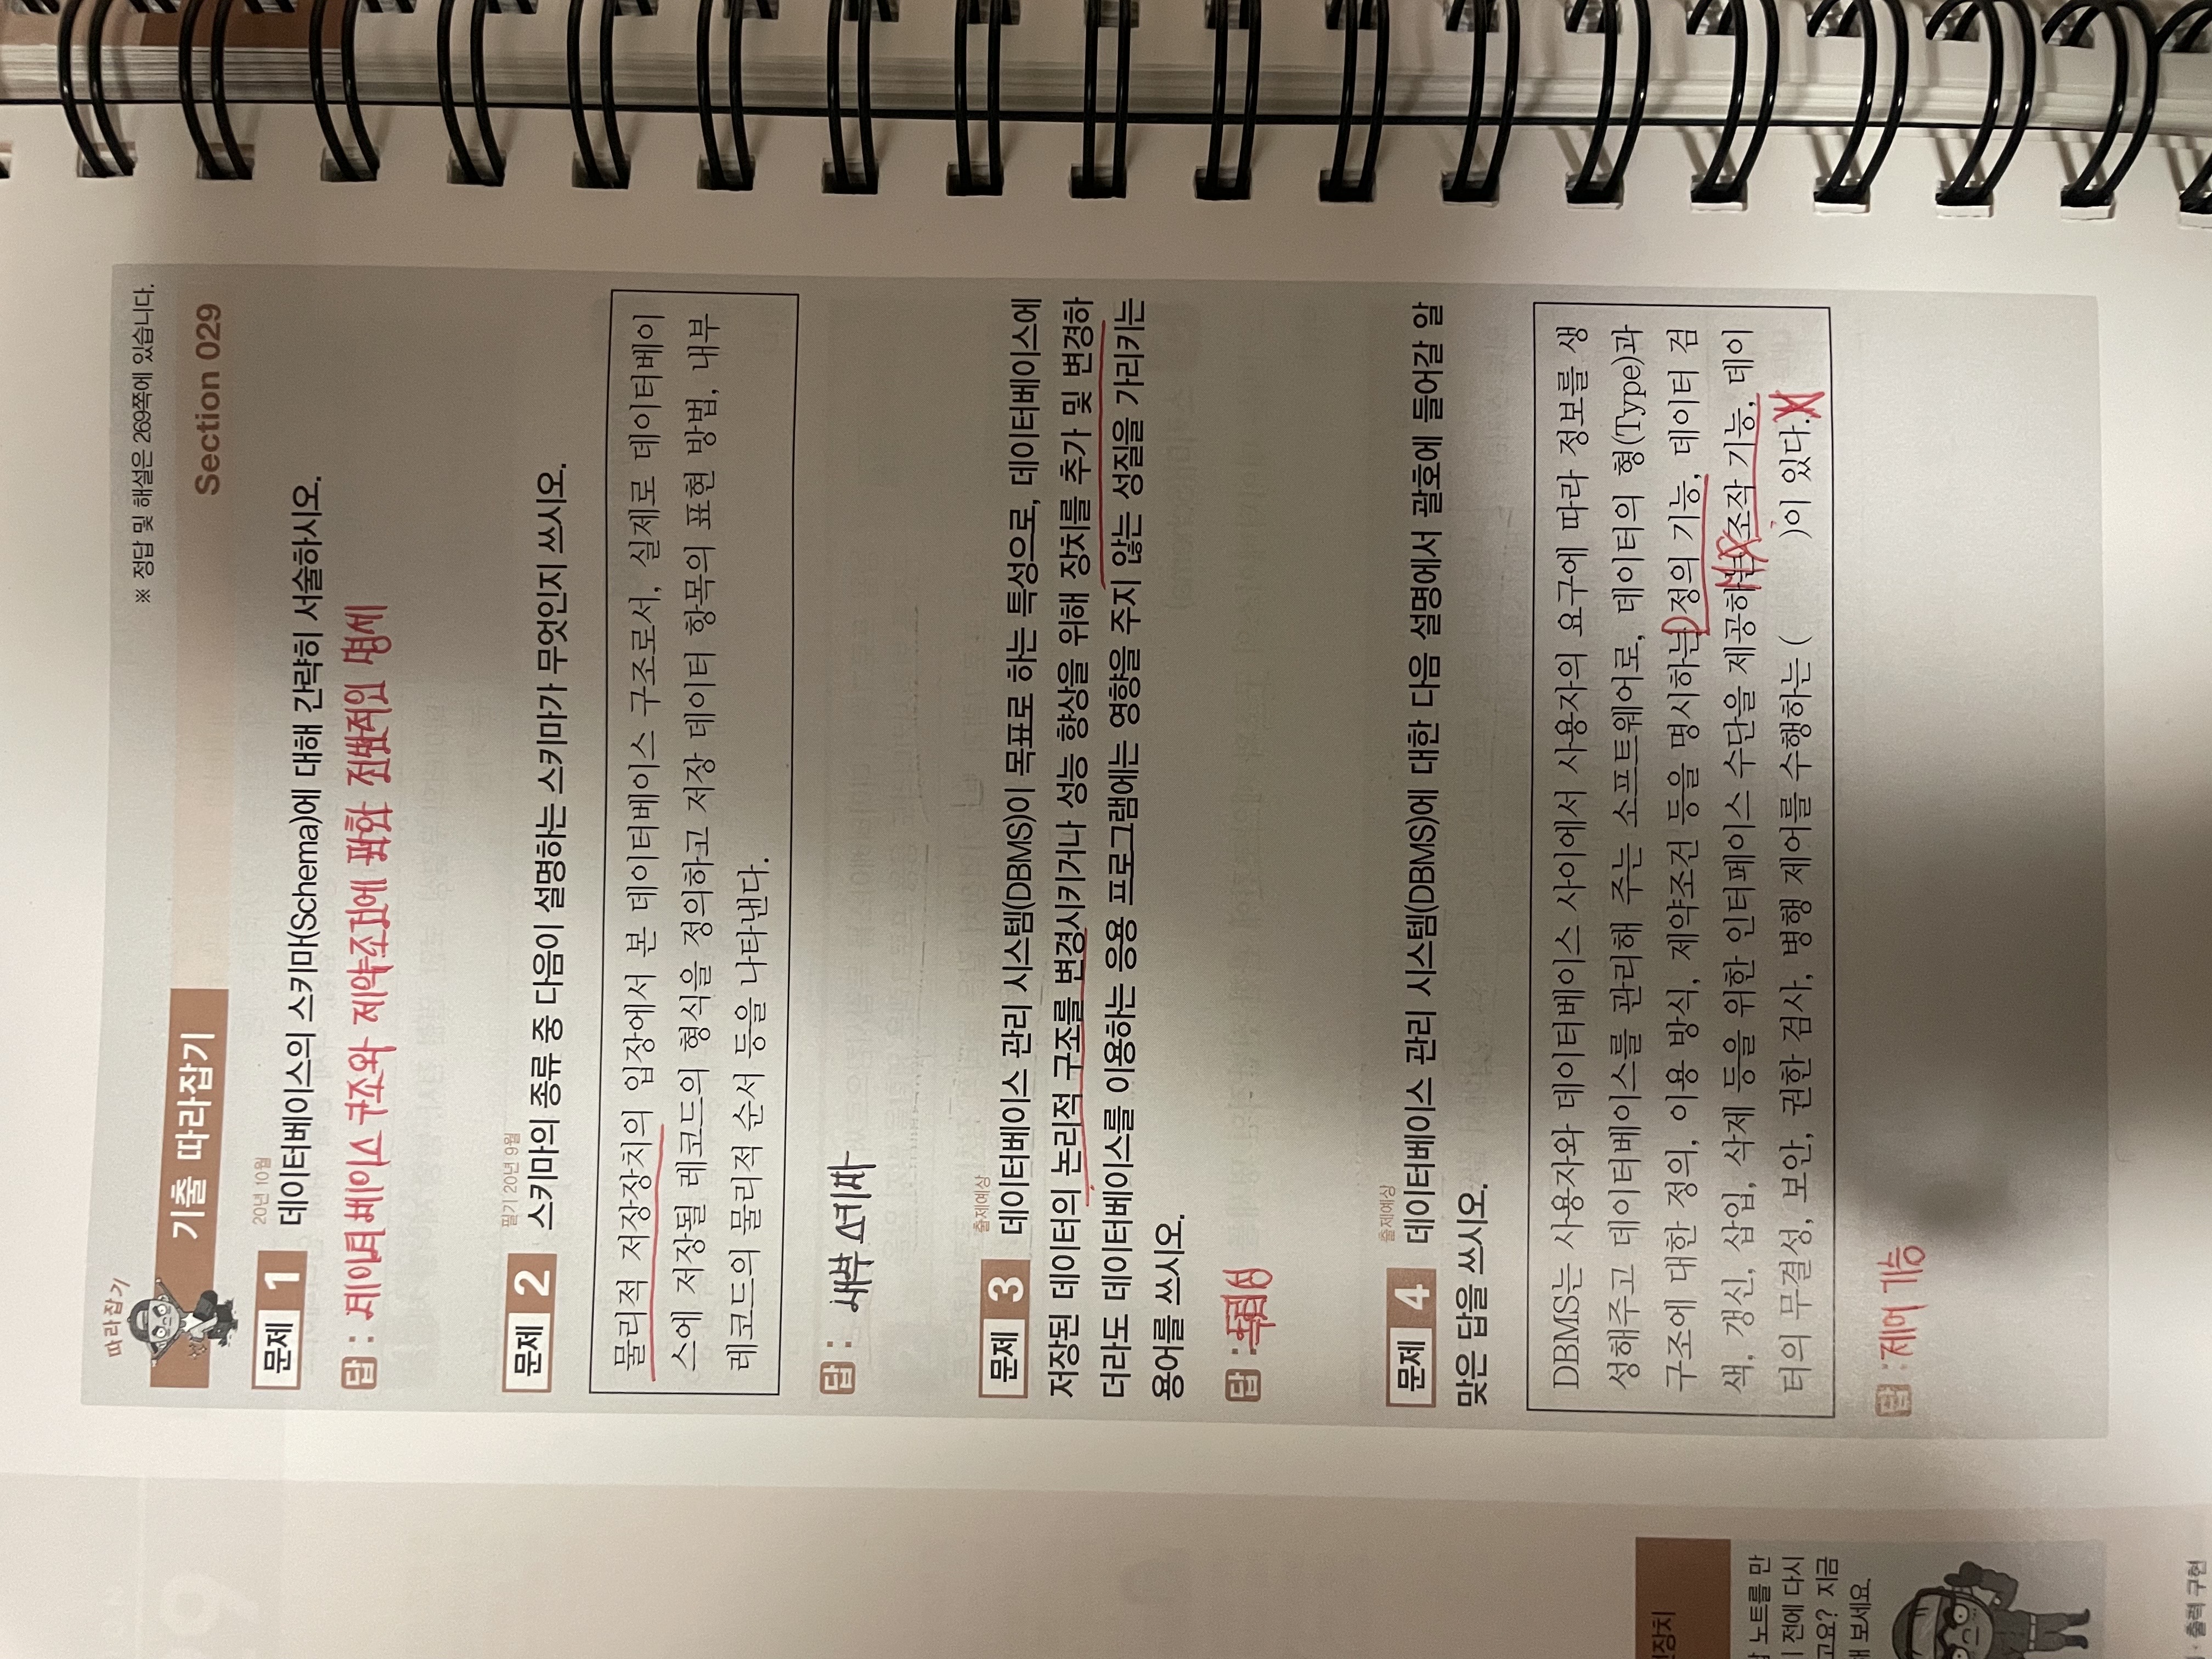 따라잡기
※ 정답 및 해설은 269쪽에 있습니다.
기출 따라잡기
Section 029
20년 10월
문제 1 데이터베이스의 스키마(Schema)에 대해 간략히 서술하시오.
답 : 데이터베이스 구조와 제약조건에 관한 전반적인 명세
필기 20년 9월
문제 2 스키마의 종류 중 다음이 설명하는 스키마가 무엇인지 쓰시오.
물리적 저장장치의 입장에서 본 데이터베이스 구조로서, 실제로 데이터베이
스에 저장될 레코드의 형식을 정의하고 저장 데이터 항목의 표현 방법, 내부
레코드의 물리적 순서 등을 나타낸다.
답 : 내부 스키마
출제예상
문제 3 데이터베이스 관리 시스템(DBMS)이 목표로 하는 특성으로, 데이터베이스에
저장된 데이터의 논리적 구조를 변경시키거나 성능 향상을 위해 장치를 추가 및 변경하
더라도 데이터베이스를 이용하는 응용 프로그램에는 영향을 주지 않는 성질을 가리키는
용어를 쓰시오.
답 : 독립성
출제예상
문제 4 데이터베이스 관리 시스템(DBMS)에 대한 다음 설명에서 괄호에 들어갈 알
맞은 답을 쓰시오.
DBMS는 사용자와 데이터베이스 사이에서 사용자의 요구에 따라 정보를 생
성해주고 데이터베이스를 관리해 주는 소프트웨어로, 데이터의 형(Type)과
구조에 대한 정의, 이용 방식, 제약조건 등을 명시하는 정의 기능, 데이터 검
색, 갱신, 삽입, 삭제 등을 위한 인터페이스 수단을 제공하는 조작 기능, 데이
터의 무결성, 보안, 권한 검사, 병행 제어를 수행하는 ( )이 있다.
답 : 제어 기능
전장치
노트를 만
전에 다시
고요? 지금
해 보세요.
출력 구현